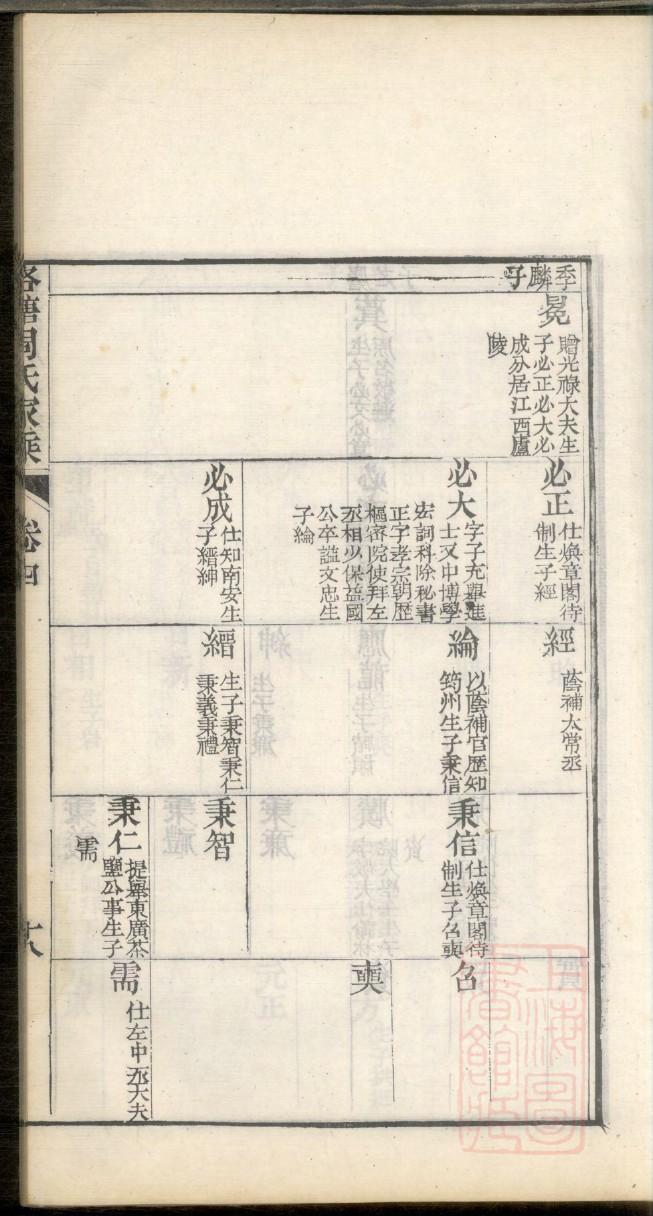 季麟子
冕
贈光祿大夫生
子必正必大必
成分居江西廬
陵
必正
仕煥章閣待
制生子經
必大
字子充舉進
士又中博學
宏詞科除秘書
正字孝宗朝歷
樞密院使拜左
丞相少保益國
公卒諡文忠生
子綸
必成
仕知南安生
子縉紳
經
蔭補太常丞
綸
以蔭補官歷知
筠州生子秉信
縉
生子秉智秉仁
秉義秉禮
秉信
仕煥章閣待
制生子召奭
秉智
秉仁
提舉東廣茶
鹽公事生子
需
召
奭
需
仕左中丞大夫
周氏家乘
卷四
十八
上海圖書館藏